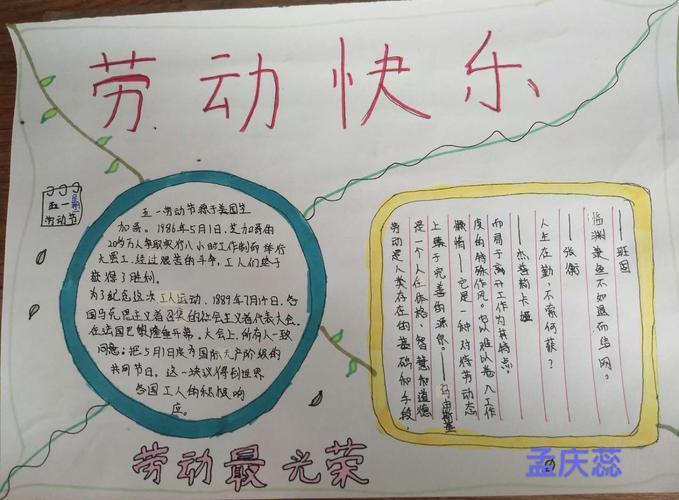 劳动快乐
五一
劳动节
五一劳动节源于美国芝
加哥。1986年5月1日,芝加哥的
20多万人争取实行八小时工作制而举行
大罢工,经过艰苦的斗争,工人们终于
获得了胜利。
为了纪念这次工人运动,1889年7月14日,各
国马克思主义者召集的社会主义者代表大会,
在法国巴黎隆重开幕。大会上,所有人一致
同意:把5月1日定为国际无产阶级的
共同节日。这一决议得到世界
各国工人的积极响
应。
——班固
临渊羡鱼不如退而结网。
——张衡
人生在勤,不索何获?
——杰弗莉卡提
而易于离开工作为其特点。
度的特殊作风。它以难以卷入工作
懒惰——它是一种对待劳动态
上臻于完善的源泉。——马
是一个人在体格、智慧和道德
劳动是人类存在的基础和手段,
劳动最光荣
孟庆蕊